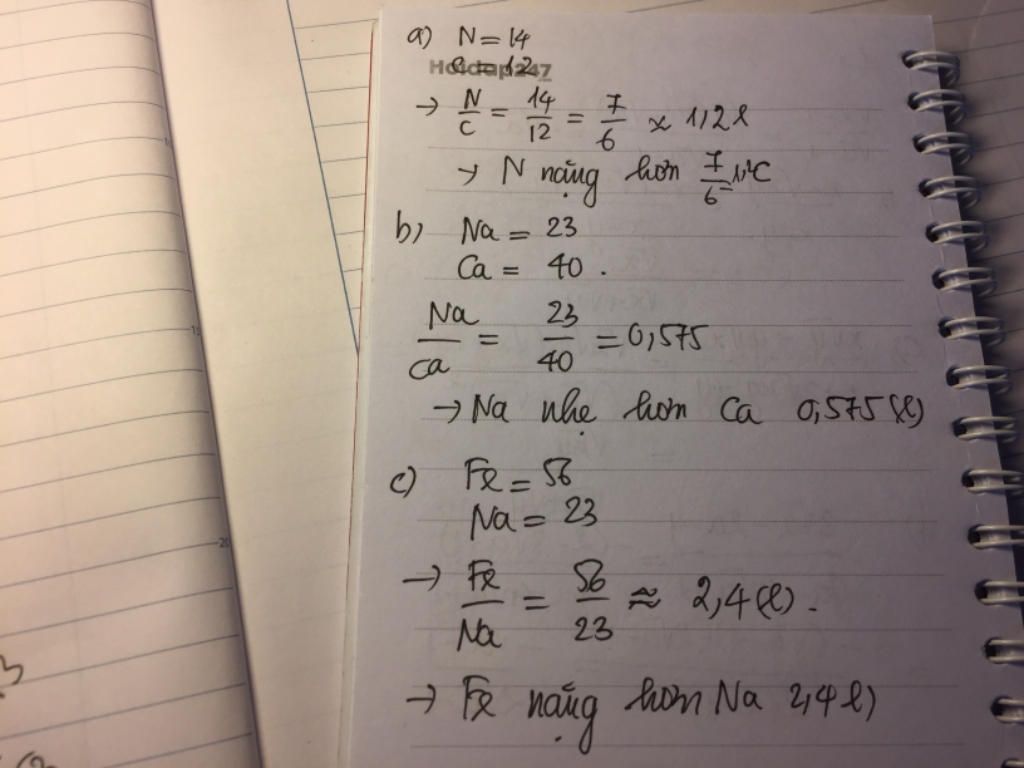 a) N = 14
C = 12
Hoidap247
→ N/C = 14/12 = 7/6 ≈ 1,2 l
→ N nặng hơn 7/6 C
b) Na = 23
Ca = 40.
Na/Ca = 23/40 = 0,575
→ Na nhẹ hơn Ca 0,575 (l)
c) Fe = 56
Na = 23
→ Fe/Na = 56/23 ≈ 2,4 (l).
→ Fe nặng hơn Na 2,4 l)